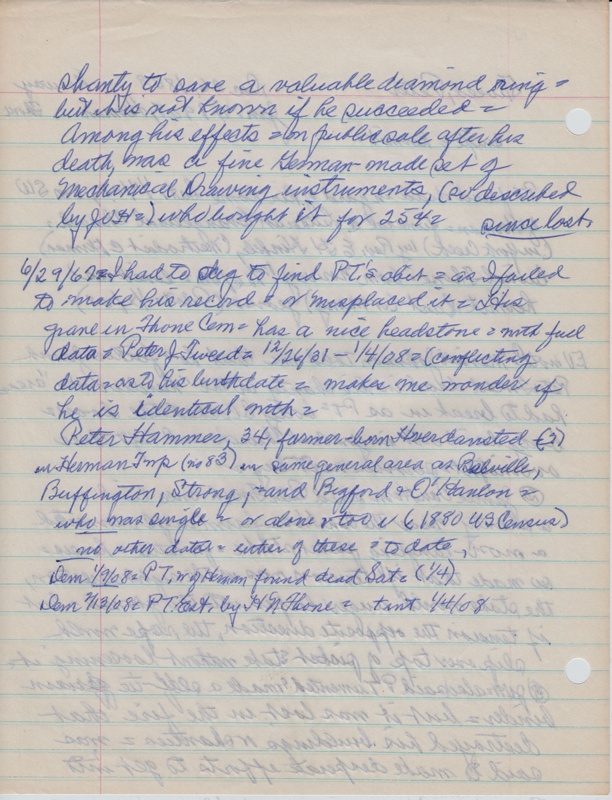 shanty to save a valuable diamond ring =
but it is not known if he succeeded =
Among his effects = on public sale after his
death, was a fine German-made set of
Mechanical Drawing instruments, (so described
by JWH=) who bought it for 25¢ = since lost.
6/29/67 = I had to dig to find P.T.'s obit = as I failed
to make his record = or misplaced it = His
grave in Thone Cem = has a nice headstone = with full
data = Peter J. Tweed = 12/26/31 – 1/4/08 = (conflicting
data = as to his birthdate = makes me wonder if
he is identical with =
Peter Hammer, 34, farmer-born
in Herman Twp (no 83) in same general area as
Buffington, Strong, = and Bigford & O'Hanlon =
who was single = or alone too in 6,1880 US Census)
no other data = either of these = to date,
Dem 1/9/08 = P.T. of Herman found dead Sat = (1/4)
Dem 2/13/08 = P.T. Est, by H N Thone = 1/4/08